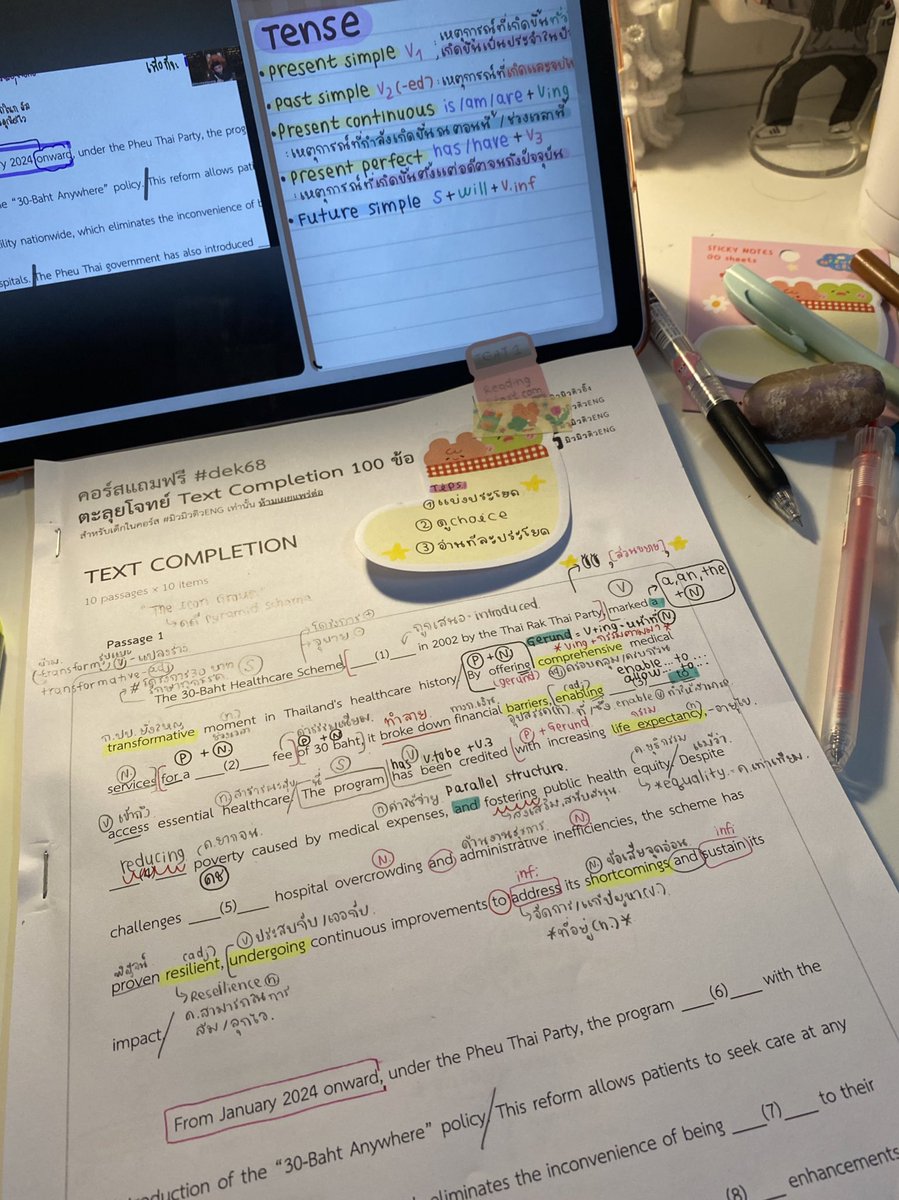 Tense
• present simple V1 : เหตุการณ์ที่เกิดขึ้น
เกิดขึ้นเป็นประจำใน
• past simple V2 (-ed) : เหตุการณ์ที่เกิดและจบ
• present continuous is/am/are + Ving
: เหตุการณ์ที่กำลังเกิดขึ้น ณ ตอนนี้ / ช่วงเวลานี้
• present perfect has/have + V3
: เหตุการณ์ที่เกิดขึ้นตั้งแต่อดีตจนถึงปัจจุบัน
• Future simple S + will + V.inf
y 2024 onward, under the Pheu Thai Party, the prog
e "30-Baht Anywhere" policy. This reform allows pati
ility nationwide, which eliminates the inconvenience of b
spitals. The Pheu Thai government has also introduced
STICKY NOTES
90 sheets
Reading
มิวมิวติวENG
มิวมิวติวENG
มิวมิวติวENG
คอร์สแถมฟรี #dek68
ตะลุยโจทย์ Text Completion 100 ข้อ
สำหรับเด็กในคอร์ส #มิวมิวติวENG เท่านั้น ห้ามเผยแพร่ต่อ
Teps
① แบ่งประโยค
② ดู choice
③ อ่านทีละประโยค
TEXT COMPLETION
10 passages × 10 items
"The Icon Group"
Passage 1
[ส่วนขยาย]
a, an, the
+ N
ถูกเสนอ - introduced
transform V - แปลงร่าง
transformative - adj
# โครงการ 30 บาท
รักษาทุกโรค
S
V
The 30-Baht Healthcare Scheme, (1) in 2002 by the Thai Rak Thai Party, marked a
gerund = V+ing - นำหน้าที่ N
P + N
(gerund)
enable...to...
allow...to...
transformative moment in Thailand's healthcare history. By offering comprehensive medical
ทำลาย
อุปสรรค (n.)
P + N
services for a (2) fee of 30 baht, it broke down financial barriers, enabling (3) to
has V.tobe + V.3
P + Gerund
V เข้าถึง
S
access essential healthcare. The program has been credited with increasing life expectancy, - อายุขัย
n ค่าใช้จ่าย
Parallel structure.
ค.ยุติธรรม
แม้ว่า
*equality - ค.เท่าเทียม
ค.ยากจน
ส่งเสริม, สนับสนุน
reducing (4) poverty caused by medical expenses, and fostering public health equity. Despite
N
ด้านงานธุรการ
N
challenges (5) hospital overcrowding and administrative inefficiencies, the scheme has
V ประสบกับ / เจอกับ
inf.
N ข้อเสีย จุดอ่อน
infi
(adj)
proven resilient, undergoing continuous improvements to address its shortcomings and sustain its
จัดการ / แก้ปัญหา (v.)
*ที่อยู่ (n.)*
Resilience n
ค.สามารถในการ
ล้ม / ลุกไว
impact.
From January 2024 onward, under the Pheu Thai Party, the program (6) with the
roduction of the "30-Baht Anywhere" policy. This reform allows patients to seek care at any
eliminates the inconvenience of being (7) to their
(8) enhancements